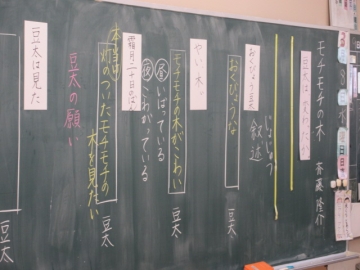 モチモチの木 斎藤隆介
豆太は変わったか
じょじゅつ
叙述
おくびょう豆太
おくびょうな
豆太
やい、木ぃ
モチモチの木がこわい
豆太
昼 いばっている
夜 こわがっている
霜月二十日のばん
本当は
灯のついたモチモチの
木を見たい
豆太
豆太の願い
豆太は見た
豆太